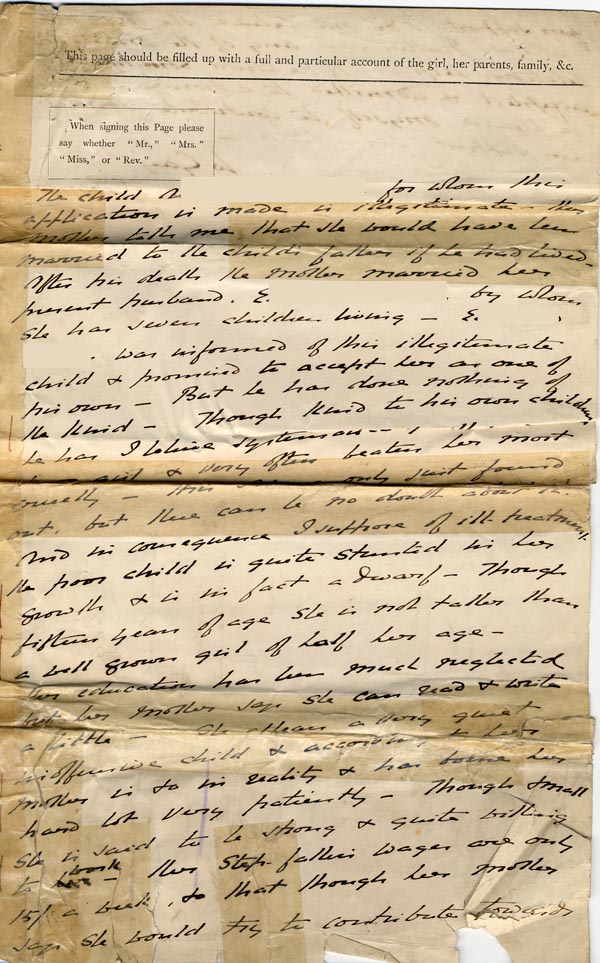 This page should be filled up with a full and particular account of the girl, her parents, family, &c.
When signing this Page please
say whether "Mr.," "Mrs."
"Miss," or "Rev."
The child for whom this
application is made is illegitimate - Her
mother tells me that she would have been
married to the child's father if he had lived -
After his death the mother married her
present husband. E. by whom
she has seven children living - E.
was informed of this illegitimate
child & promised to accept her as one of
his own - But he has done nothing of
the kind - Though kind to his own children
he has I believe
& very often beaten her most
cruelly - only just found
out, but there can be no doubt about it.
And in consequence I suppose of ill treatment
the poor child is quite stunted in her
growth & is in fact a dwarf - Though
fifteen years of age she is not taller than
a well grown girl of half her age -
Her education has been much neglected
but her mother says she can read & write
a little - She a very quiet
inoffensive child & according to her
mother is so in reality & has borne her
hard lot very patiently - Though small
she is said to be strong & quite willing
to work - Her Step-father's wages are only
15/ a week, so that though her mother
says she would try to contribute towards